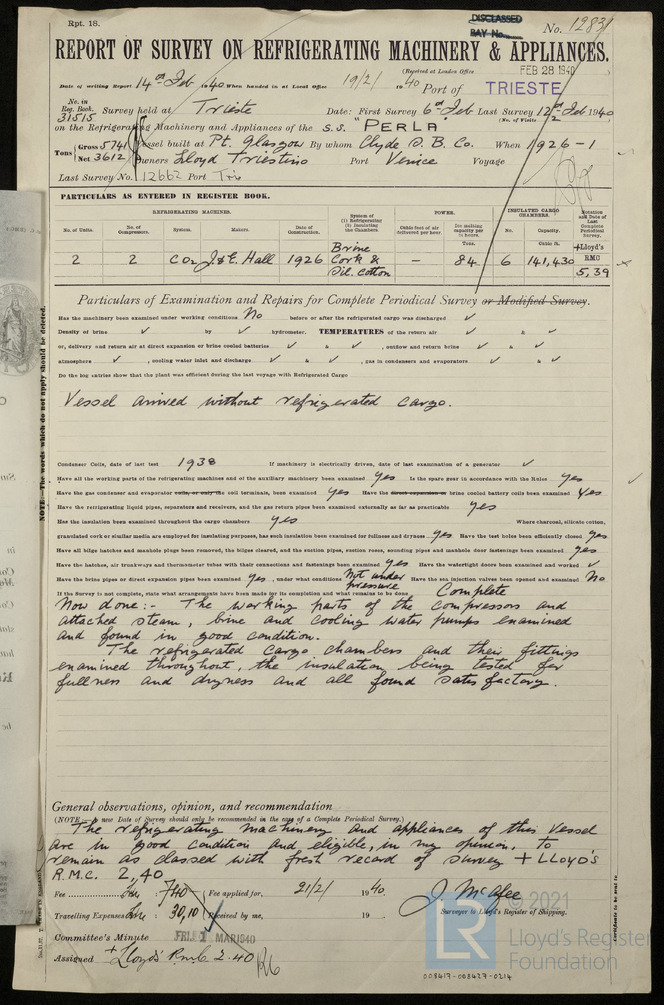 Rpt. 18.
DISCLASSED
BAY No.
No. 12831
REPORT OF SURVEY ON REFRIGERATING MACHINERY & APPLIANCES.
(Received at London Office FEB 28 1940
Date of writing Report 14th Feb 1940. When handed in at Local Office 19/2/1940 Port of TRIESTE
No. in Reg. Book. 31515 Survey held at Trieste Date: First Survey 6th Feb Last Survey 12th Feb 1940
(No. of Visits 2
on the Refrigerating Machinery and Appliances of the S.S. "PERLA"
Tons Gross 5741 Net 3612 Vessel built at Pt. Glasgow By whom Clyde S. B. Co. When 1926-1
Owners Lloyd Triestino Port Venice Voyage
Last Survey No. 12662 Port Trie
PARTICULARS AS ENTERED IN REGISTER BOOK.
REFRIGERATING MACHINES. System of (1) Refrigerating (2) Insulating the Chambers POWER. INSULATED CARGO CHAMBERS. Notation and Date of Last Complete Periodical Survey.
No. of Units. No. of Compressors. System. Makers. Date of Construction. Cubic feet of air delivered per hour Ice melting capacity per 24 hours. Tons. No. Capacity. Cubic ft.
2 2 CO2 J & E. Hall 1926 Brine Cork & Sil. Cotton — 84 6 141,430 +Lloyd's RMC 5,39
Particulars of Examination and Repairs for Complete Periodical Survey or Modified Survey.
Has the machinery been examined under working conditions No before or after the refrigerated cargo was discharged ✓
Density of brine ✓ by ✓ hydrometer. TEMPERATURES of the return air ✓ & ✓
or, delivery and return air at direct expansion or brine cooled batteries ✓ & ✓, outflow and return brine ✓ & ✓
atmosphere ✓, cooling water inlet and discharge ✓ & ✓, gas in condensers and evaporators ✓ & ✓
Do the log entries show that the plant was efficient during the last voyage with Refrigerated Cargo
Vessel arrived without refrigerated cargo.
NOTE.—The words which do not apply should be deleted.
Condenser Coils, date of last test 1938 If machinery is electrically driven, date of last examination of a generator ✓
Have all the working parts of the refrigerating machines and of the auxiliary machinery been examined yes Is the spare gear in accordance with the Rules yes
Have the gas condenser and evaporator coils, or only the coil terminals, been examined yes Have the direct expansion or brine cooled battery coils been examined yes
Have the refrigerating liquid pipes, separators and receivers, and the gas return pipes been examined externally as far as practicable yes
Has the insulation been examined throughout the cargo chambers yes Where charcoal, silicate cotton,
granulated cork or similar media are employed for insulating purposes, has such insulation been examined for fullness and dryness yes Have the test holes been efficiently closed yes
Have all bilge hatches and manhole plugs been removed, the bilges cleared, and the suction pipes, suction roses, sounding pipes and manhole door fastenings been examined yes
Have the hatches, air trunkways and thermometer tubes with their connections and fastenings been examined yes Have the watertight doors been examined and worked ✓
Have the brine pipes or direct expansion pipes been examined yes, under what conditions Not under pressure Have the sea injection valves been opened and examined No
If the Survey is not complete, state what arrangements have been made for its completion and what remains to be done Complete
Now done:- The working parts of the compressors and
attached steam, brine and cooling water pumps examined
and found in good condition.
The refrigerated cargo chambers and their fittings
examined throughout, the insulation being tested for
fullness and dryness and all found satisfactory.
General observations, opinion, and recommendation
(NOTE.—A new Date of Survey should only be recommended in the case of a Complete Periodical Survey.)
The refrigerating machinery and appliances of this vessel
are in good condition and eligible, in my opinion, to
remain as classed with fresh record of survey + LLOYD'S
R.M.C. 2,40
Fee Lire : 740 Fee applied for, 21/2/ 1940.
Travelling Expenses Lire : 30,10 Received by me, 19
J. McAfee
Surveyor to Lloyd's Register of Shipping.
Committee's Minute FRI. 1 MAR 1940
Assigned + Lloyd's RMC 2.40
© 2021
LR
Lloyd's Register
Foundation
008417-008427-0214